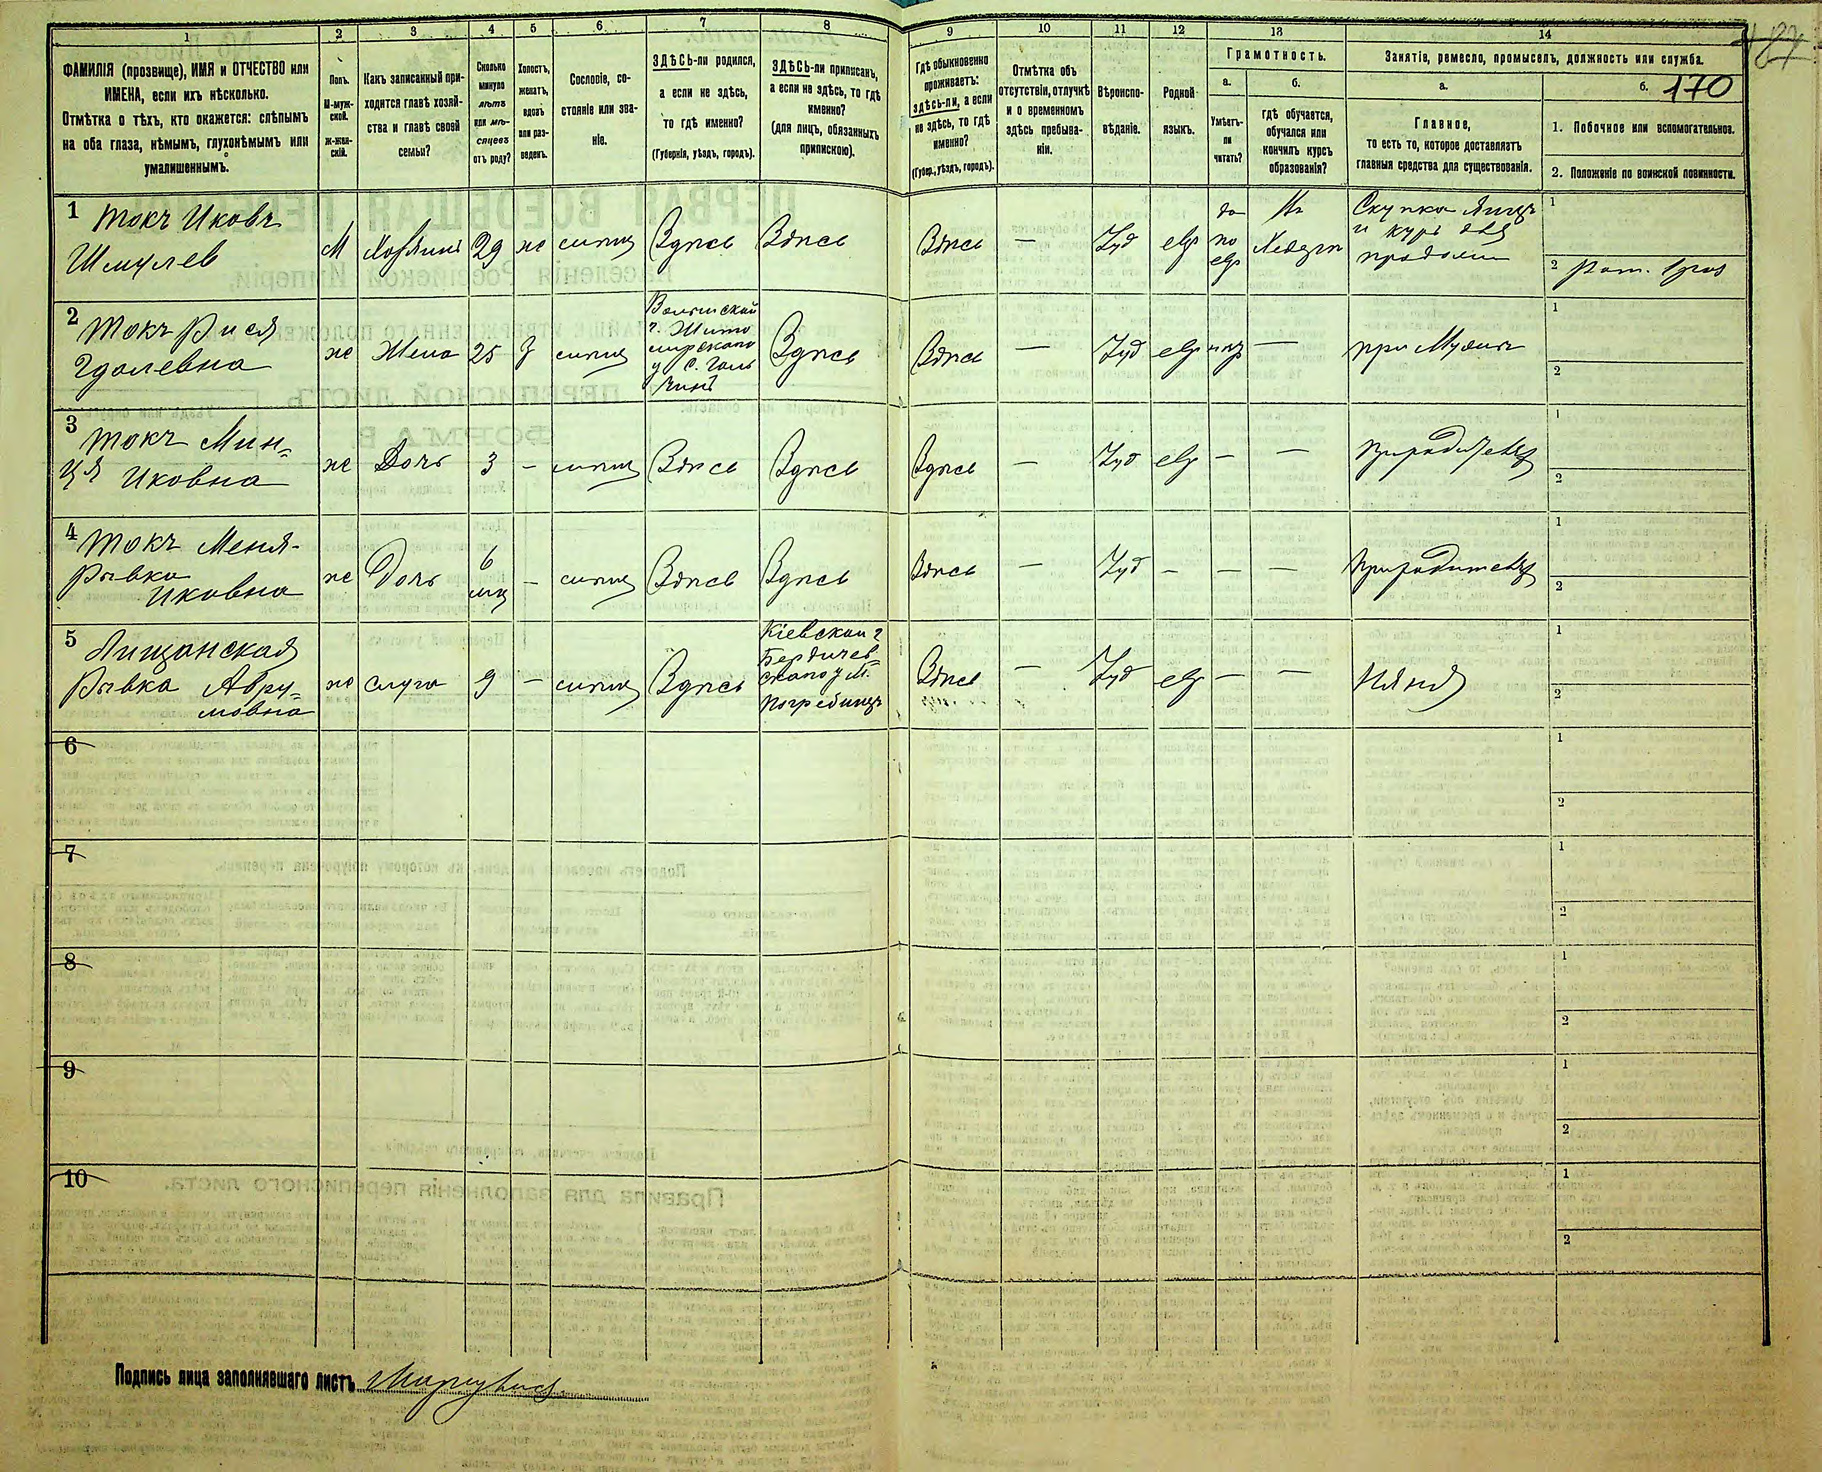 1
2
3
4
5
6
7
8
9
10
11
12
13
14
187
ФАМИЛІЯ (прозвище), ИМЯ и ОТЧЕСТВО или
ИМЕНА, если ихъ нѣсколько.
Отмѣтка о тѣхъ, кто окажется: слѣпымъ
на оба глаза, нѣмымъ, глухонѣмымъ или
умалишеннымъ.
Полъ.
М-муж-
ской.
Ж-жен-
скій.
Какъ записанный при-
ходится главѣ хозяй-
ства и главѣ своей
семьи?
Сколько
минуло
лѣтъ
или мѣ-
сяцевъ
отъ роду?
Холостъ,
женатъ,
вдовъ
или раз-
веденъ.
Сословіе, со-
стояніе или зва-
ніе.
ЗДѢСЬ-ли родился,
а если не здѣсь,
то гдѣ именно?
(Губернія, уѣздъ, городъ).
ЗДѢСЬ-ли приписанъ,
а если не здѣсь, то гдѣ
именно?
(для лицъ, обязанныхъ
припискою).
Гдѣ обыкновенно
проживаетъ:
здѣсь-ли, а если
не здѣсь, то гдѣ
именно?
(Губер., уѣздъ, городъ).
Отмѣтка объ
отсутствіи, отлучкѣ
и о временномъ
здѣсь пребыва-
ніи.
Вѣроиспо-
вѣданіе.
Родной
языкъ.
Грамотность.
а.
Умѣетъ-
ли
читать?
б.
гдѣ обучается,
обучался или
кончилъ курсъ
образованія?
Занятіе, ремесло, промыселъ, должность или служба.
а.
Главное,
то есть то, которое доставляетъ
главныя средства для существованія.
б. 170
1. Побочное или вспомогательное.
2. Положеніе по воинской повинности.
1 Токъ Иковъ
Шмулев
М
Хозяинъ
29
ж
Здѣсь
Здѣсь
Здѣсь
—
Іуд
евр
да
по
евр
Скупка яицъ
и куръ для
продажи
1
2
2 Токъ Рися
Гдалевна
ж
Жена
25
З
Волынской
г. Жито
мирскаго
у с.
Здѣсь
Здѣсь
—
Іуд
евр
—
при Мужѣ
1
2
3 Токъ Мин-
ця Иковна
ж
Дочь
3
—
Здѣсь
Здѣсь
Здѣсь
—
Іуд
евр
—
—
При родителяхъ
1
2
4 Токъ Меня-
Рывка
Иковна
ж
Дочь
6
мц
—
Здѣсь
Здѣсь
Здѣсь
—
Іуд
—
—
—
При родителяхъ
1
2
5 Лищанская
Рывка Авру-
мовна
ж
слуга
9
—
Здѣсь
Кіевской г
Бердичев
скаго у М.
Погребищъ
Здѣсь
—
Іуд
евр
—
—
Няня
1
2
6
1
2
7
1
2
8
1
2
9
1
2
10
1
2
Подпись лица заполнявшаго листъ